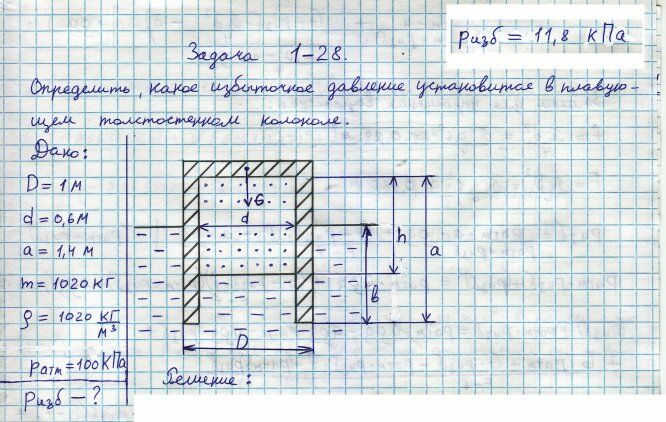 Pизб = 11,8 кПа
Задача 1-28.
Определить, какое избыточное давление установится в плаваю-
щем толстостенном колоколе.
Дано:
D = 1 м
d = 0,6 м
a = 1,4 м
m = 1020 кг
ρ = 1020 кг/м³
pатм = 100 кПа
Pизб - ?
G
d
h
a
в
D
Решение: